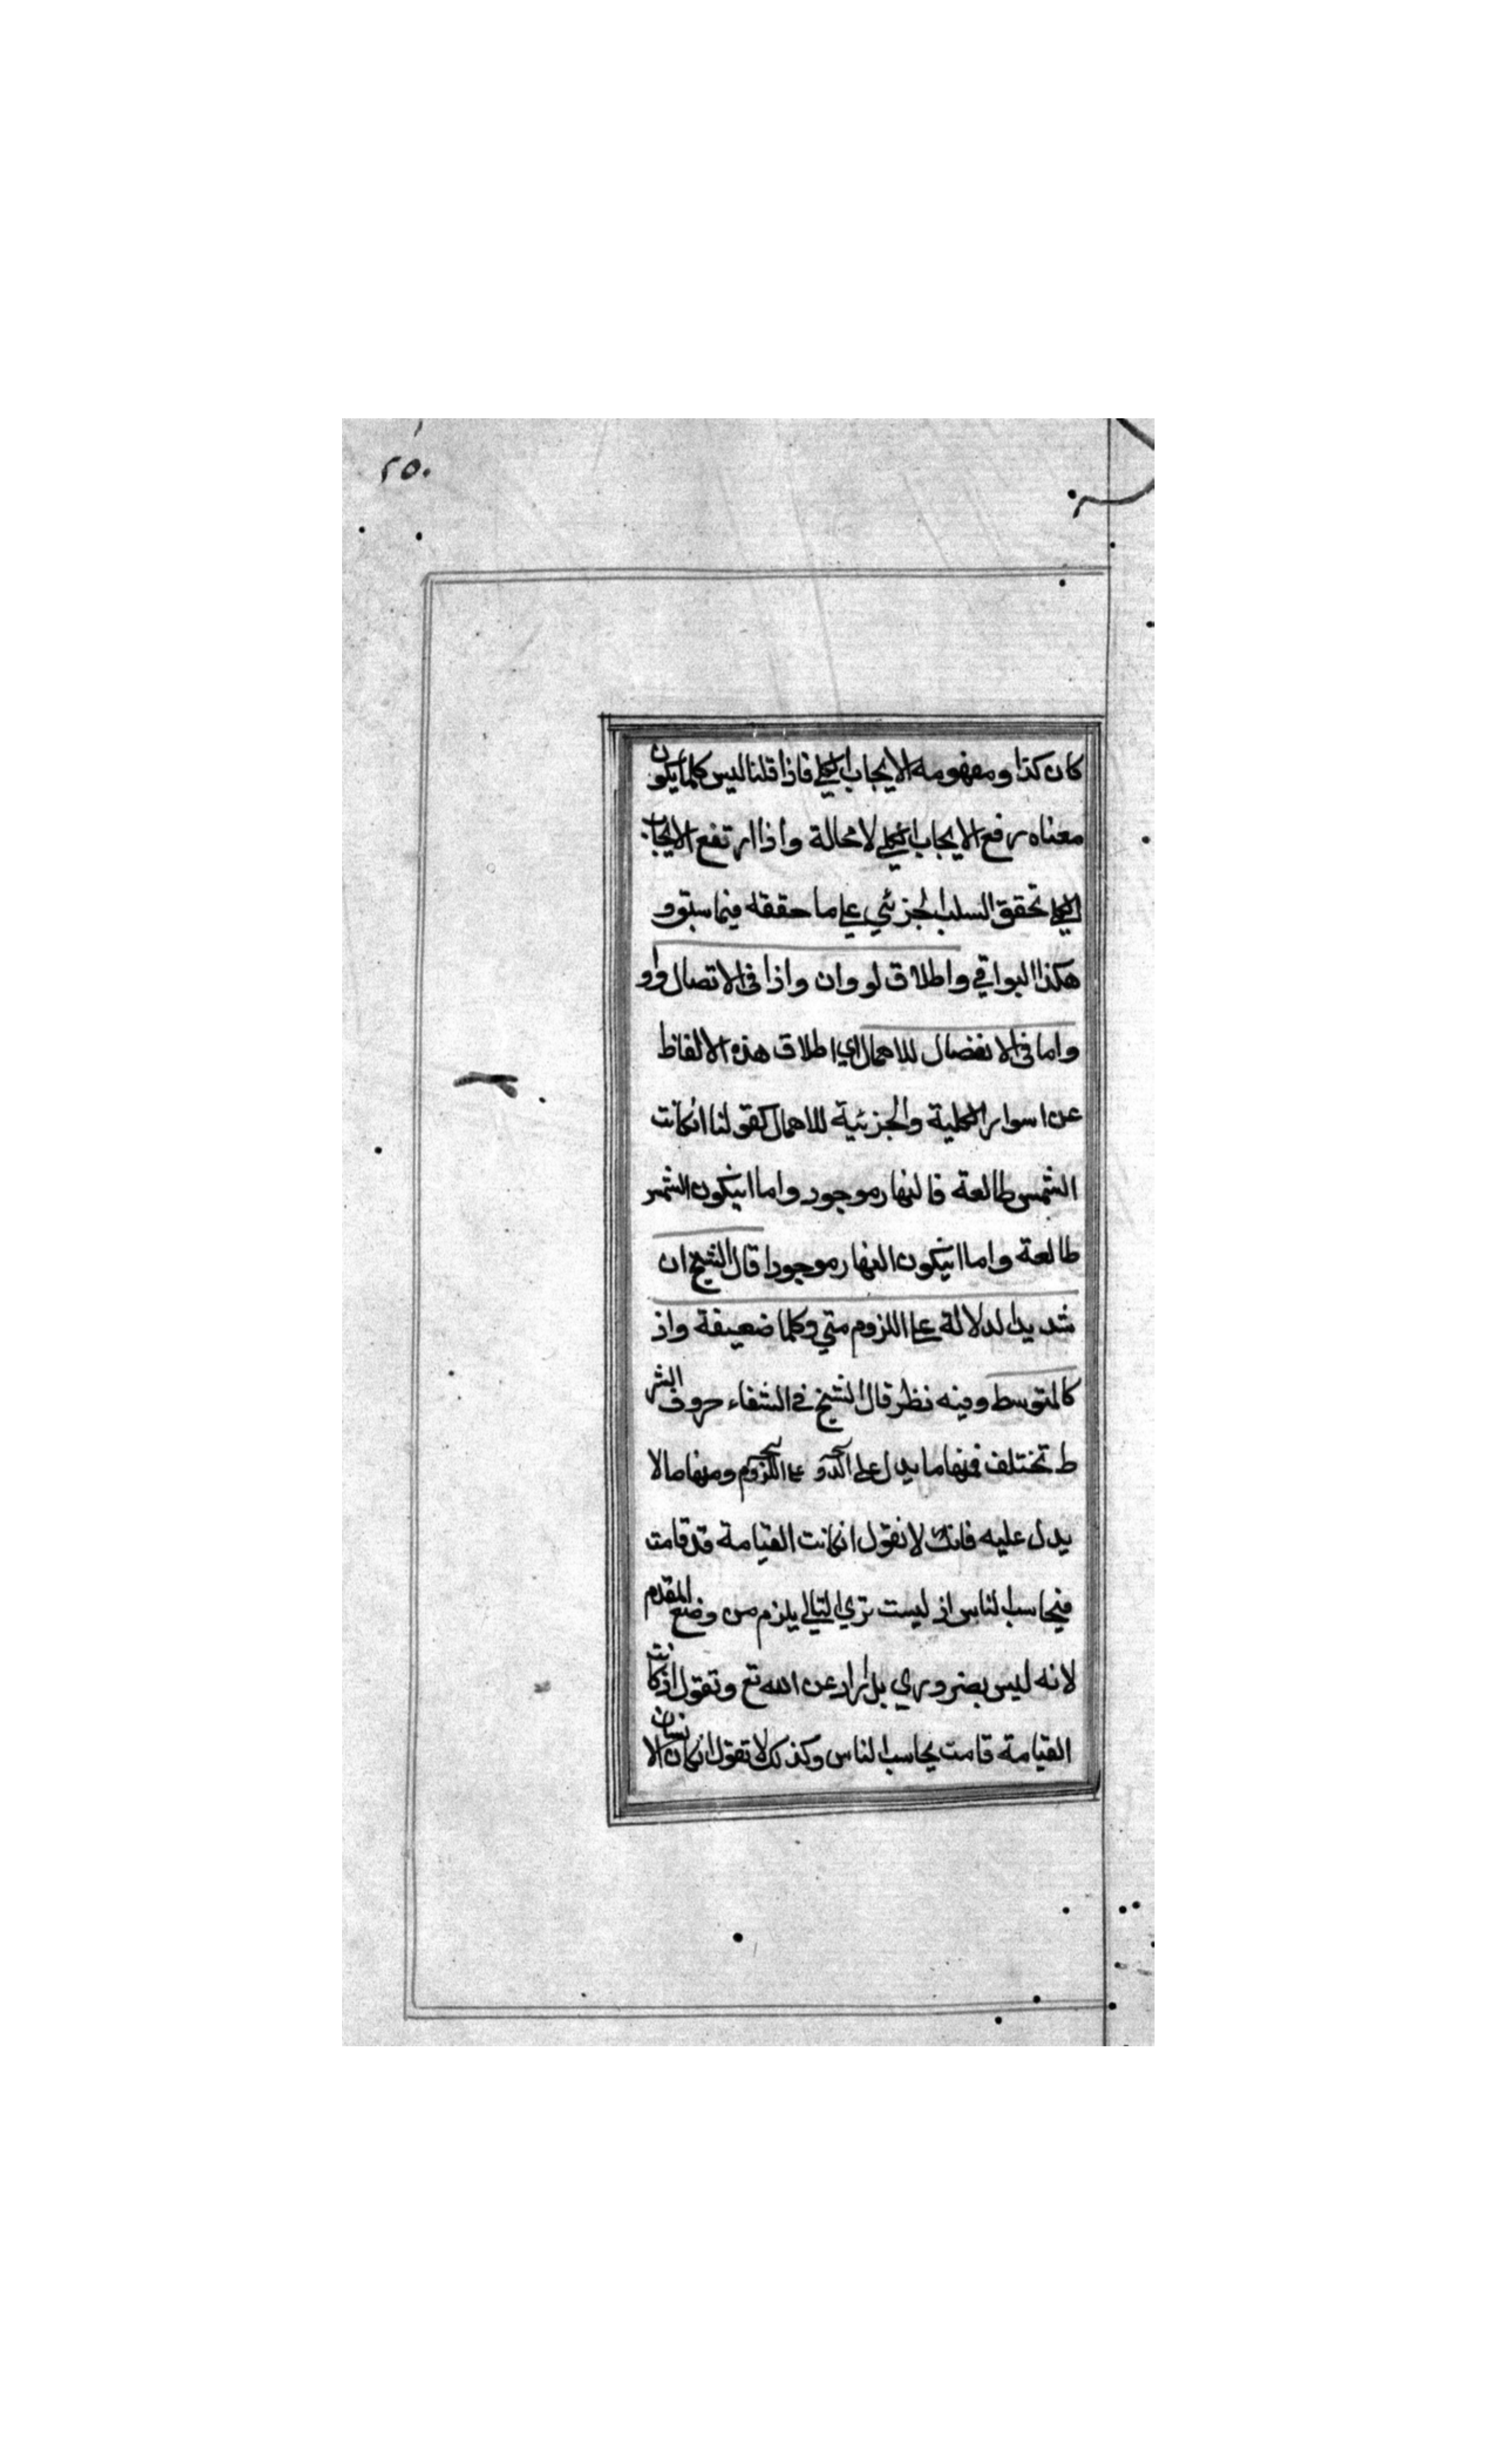 ٢٥٠
كان كذا ومفهومه الايجاب الكلي فاذا قلنا ليس كلما يكون
معناه رفع الايجاب الكلي لا محالة واذا ارتفع الايجاب
الكلي تحقق السلب الجزئي على ما حققه فيما سبق و
هكذا البواقي واطلاق لو وان واذا في الاتصال واو
واما في الانفصال للاهمال اي اطلاق هذه الالفاظ
عن اسوار الكلية والجزئية للاهمال كقولنا انكانت
الشمس طالعة فالنهار موجود واما انيكون الشمس
طالعة واما انيكون النهار موجودا قال الشيخ ان
شديد الدلالة على اللزوم متي وكلما ضعيفة واذ
كالمتوسط وفيه نظر قال الشيخ في الشفاء حروف الشر
ط تختلف فمنها ما يدل على على اللزوم ومنها ما لا
يدل عليه فانك لا تقول انكانت القيامة قد قامت
فيحاسب الناس از ليست تري التالي يلزم من وضع المقدم
لانه ليس بضروري بل اراد عن الله تع وتقول اذ كانت
القيامة قامت يحاسب الناس وكذلك لا تقول انكان الانسان